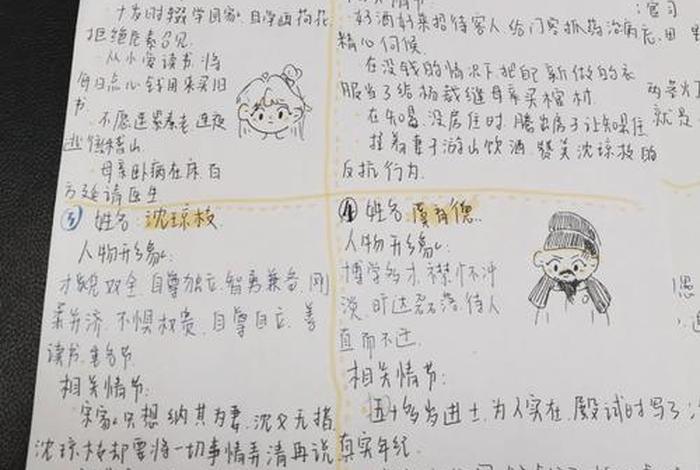 十岁时辍学回家.自学画荷花
拒绝危素召见.
·从小爱读书.将
每日点心钱用来买旧
书.
·不愿连累秦老.连夜
逃往会稽山
·母亲卧病在床.百
方延请医生
③ 姓名:沈琼枝.
人物形象:
才貌双全.自尊独立.智勇兼备.刚
柔并济.不惧权贵.自尊自立.善
读书.重名节
相关情节:
·宋家只想纳其为妾.沈父无措
沈琼枝却要将一切事情弄清再说
好酒好菜招待客人.给门客抓药治病.
精心伺候.
·在没钱的情况下把自己新做的衣
服当了给杨裁缝母亲买棺材
·在没房住时.腾出房子让
·拉着妻子游山饮酒.赞美沈琼枝的
反抗行为.
④ 姓名:虞育德.
人物形象:
博学多才.襟怀冲
淡.旷达磊落.待人
直而不迂.
相关情节:
·五十多岁进士.为人实在.殿试时写了
真实年纪.
官司
就是